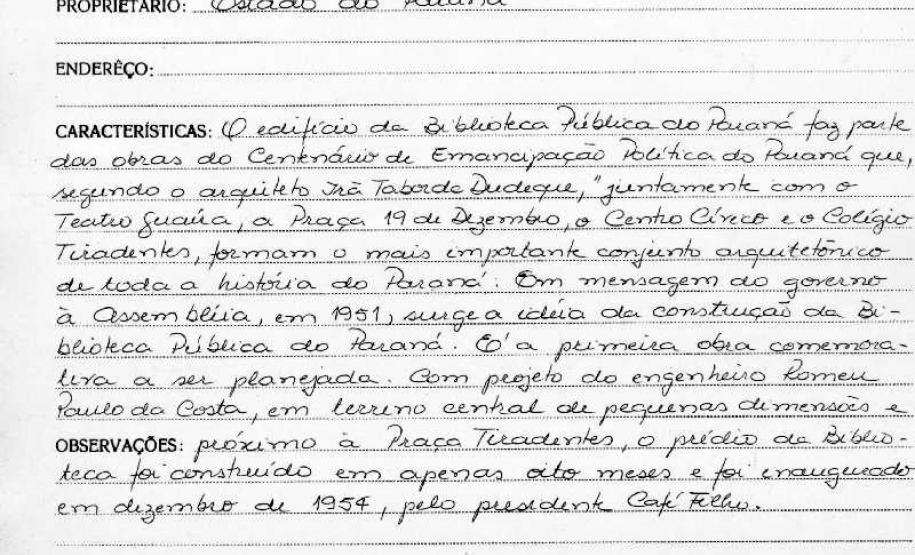 PROPRIETÁRIO: Estado do Paraná
ENDERÊÇO:
CARACTERÍSTICAS: O edifício da Biblioteca Pública do Paraná faz parte
das obras do Centenário de Emancipação Política do Paraná que,
segundo o arquiteto Irã Taborda Dudeque, "juntamente com o
Teatro Guaíra, a Praça 19 de Dezembro, o Centro Cívico e o Colégio
Tiradentes, formam o mais importante conjunto arquitetônico
de toda a história do Paraná. Em mensagem do governo
à Assembléia, em 1951, surge a idéia da construção da Bi-
blioteca Pública do Paraná. É a primeira obra comemora-
tiva a ser planejada. Com projeto do engenheiro Romeu
Paulo da Costa, em terreno central de pequenas dimensões e
OBSERVAÇÕES: próximo à Praça Tiradentes, o prédio da Biblio-
teca foi construído em apenas oito meses e foi inaugurado
em dezembro de 1954, pelo presidente Café Filho.